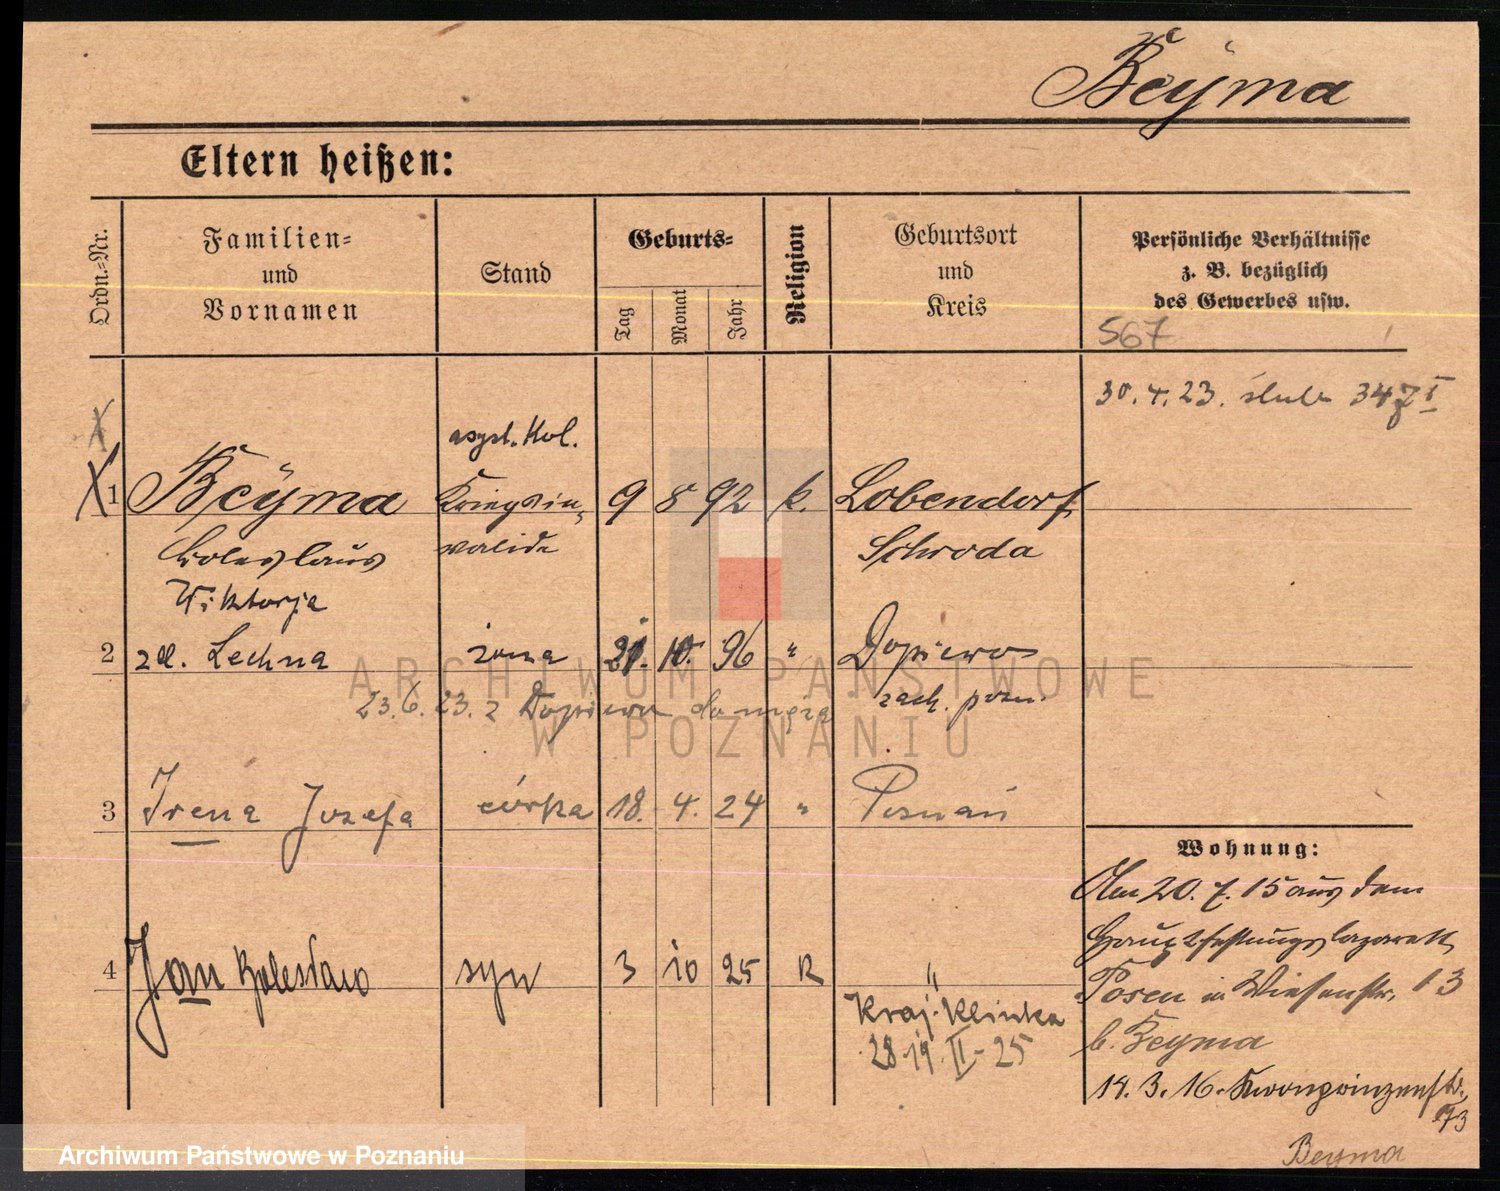 Beÿma
Eltern heißen:
Ordn.=Nr.
Familien=
und
Vornamen
Stand
Geburts=
Tag
Monat
Jahr
Religion
Geburtsort
und
Kreis
Persönliche Verhältnisse
z. B. bezüglich
des Gewerbes usw.
567
30. 4. 23. ślub 347 I
asyst. Kol.
1 Beÿma Kriegsin= 9 8 92 k. Lobendorf
Boleslaus valide Schroda
Wiktorja
2 zd. Lechna żona 21. 10. 96 " Dopiewo
zach. pozn.
23. 6. 23. z Dopiewa do męża
3 Irena Jozefa córka 18. 4. 24 " Poznań
4 Jan Bolesław syn 3 10 25 R "
Kraj. Klinika
28 19 II - 25
Wohnung:
Am 20. 7. 15 aus dem
Hauptfestungslazarett
Posen in Wiesenstr. 13
b. Beyma
14. 3. 16. Kronprinzenstr.
73
Beyma
ARCHIWUM PAŃSTWOWE
W POZNANIU
Archiwum Państwowe w Poznaniu